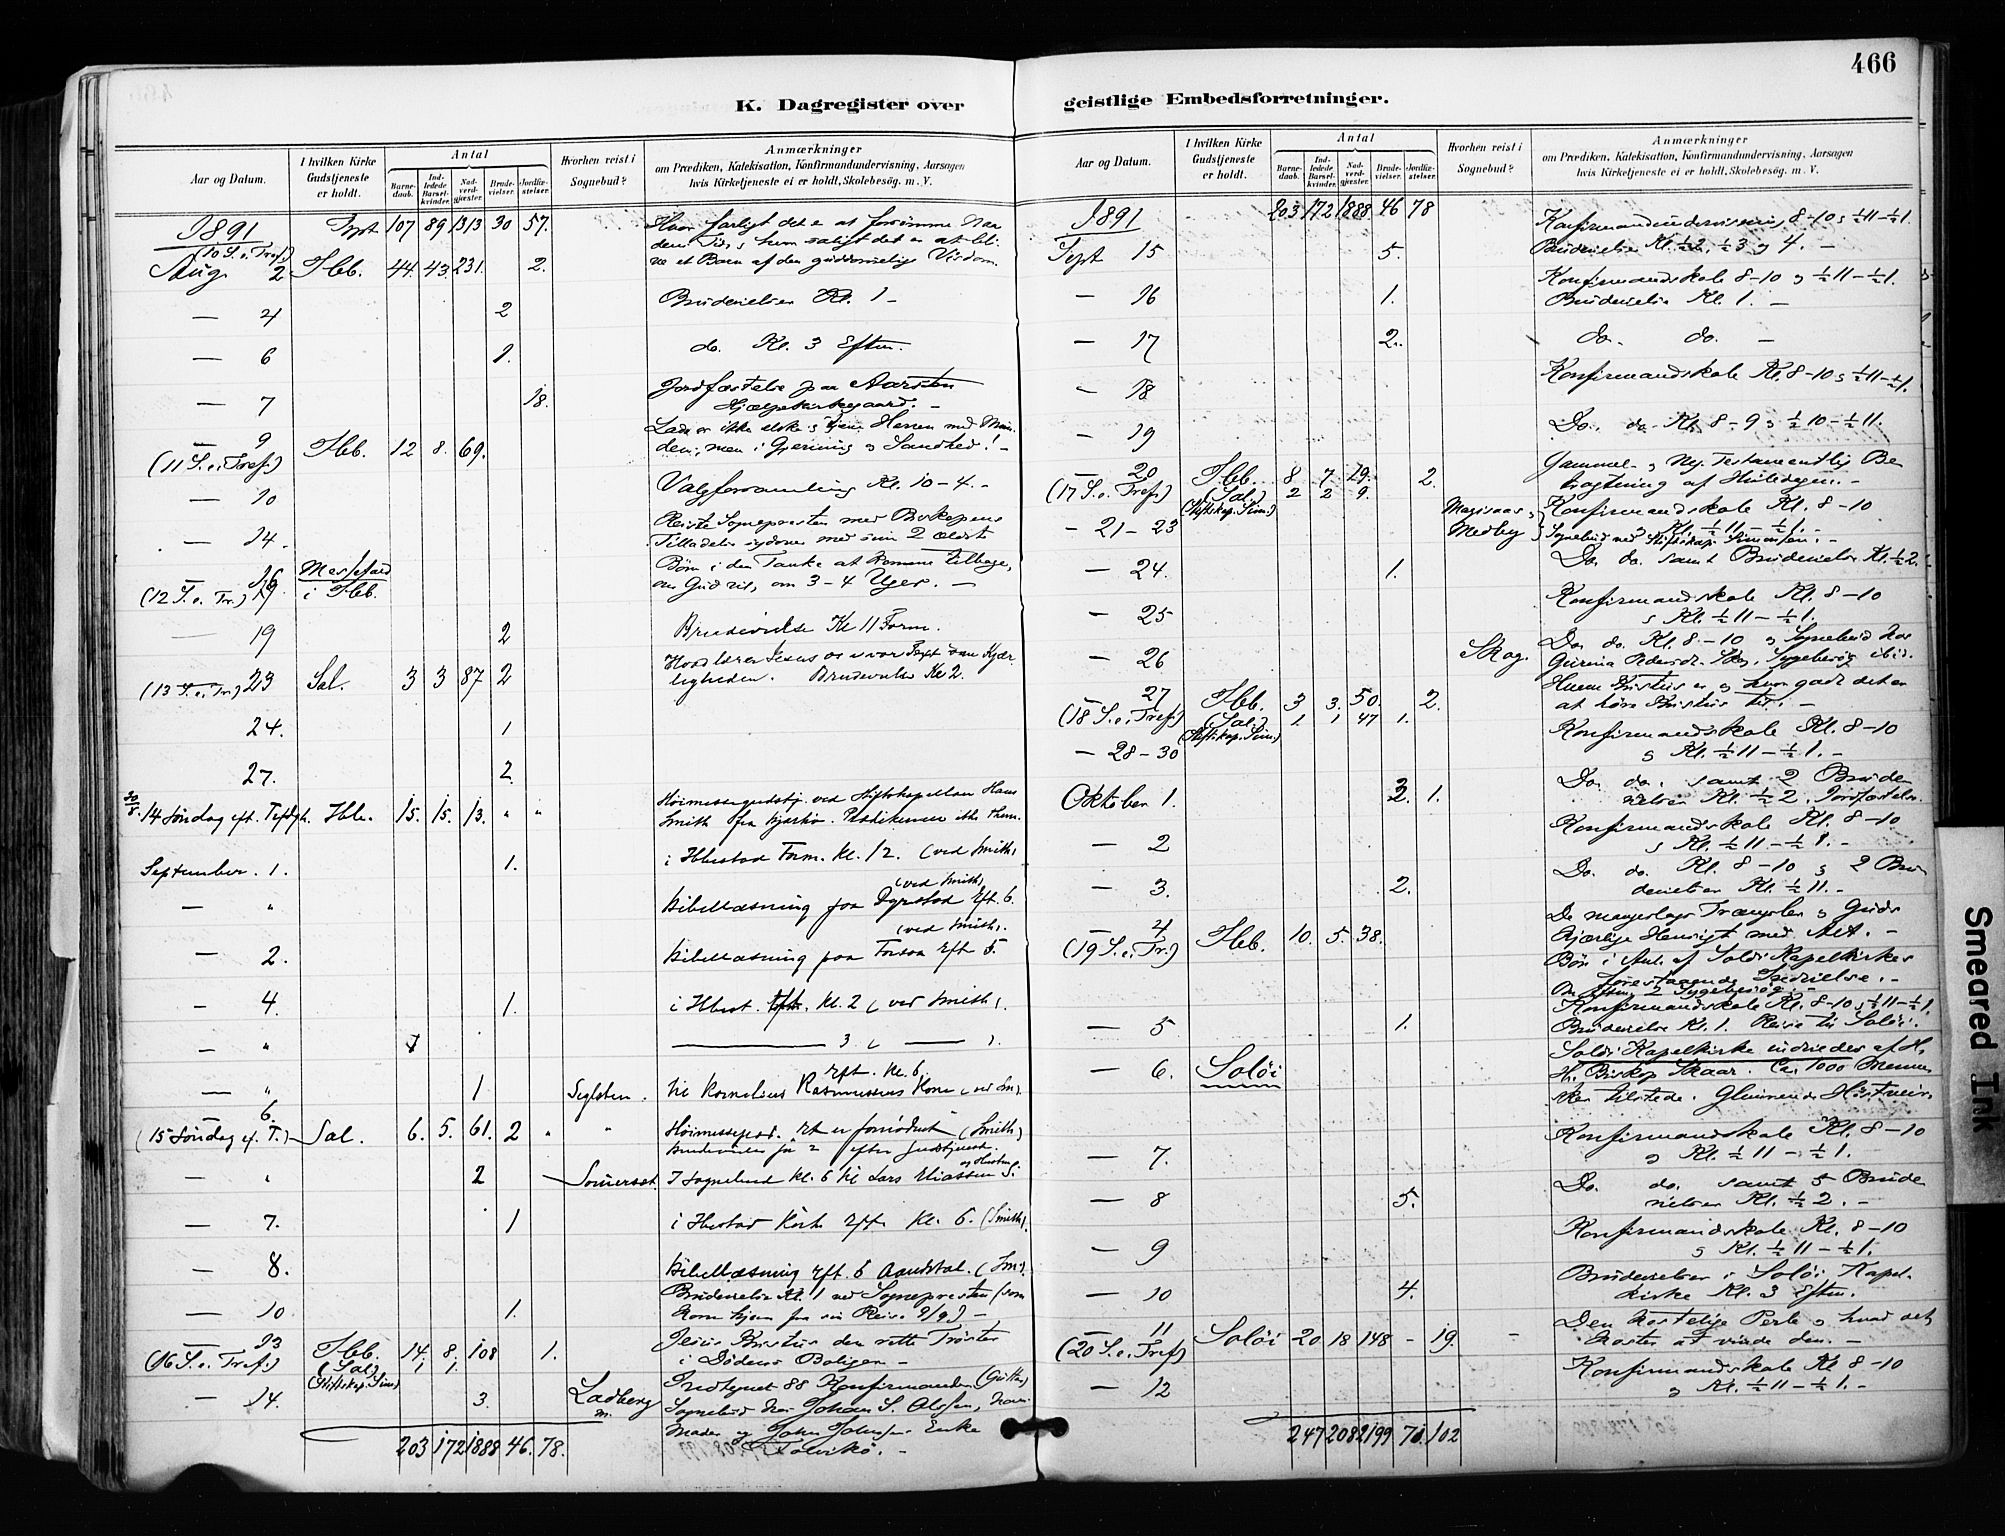 466
K. Dagregister over geistlige Embedsforretninger.
Aar og Datum.
I hvilken Kirke Gudstjeneste er holdt.
Antal
Barnedaab.
Indledede Barselkvinder.
Nadverdgjester.
Brudevielser.
Jordfæstelser.
Hvorhen reist i Sognebud?
Anmærkninger
om Prædiken, Katekisation, Konfirmandundervisning, Aarsagen
hvis Kirketjeneste ei er holdt, Skolebesøg. m. V.
1891 107 89 1313 30 57.
Aug. 2 Ibb. 44. 43. 231. 2.
— 4 2 Brudevielser Kl. 1 —
— 6 1. do. Kl. 3 Eftm.
— 7 18. Jordfæstelse paa Aarsten
Hjælpekirkegaard. —
— 9 Ibb. 12 8. 69.
(11 S. e. Tref.) den, men i Gjerning og Sandhed! —
— 10 Valgforsamling Kl. 10–4. —
— 14. Reiste Sognepresten med Biskopens
Tilladelse sydover med sine 2 ældste
Messefald Børn i den Tanke at komme tilbage,
(12 S. e. Tr.) i Ibb. om Gud vil, om 3–4 Uger. —
— 19 2 Brudevielse Kl 11 Form.
(13 S. e. Tr.) 23 Sal. 3 3 87 2
ligheden. Brudevielse Kl 2.
24. 1
27. 2.
30/8. 14 Søndag eft. Trefdgh. Ibb. 15. 15. 13. " " Høimessegudstj. ved Stiftskapellan Hans
Smith fra
September. 1. 1. i Ibbestad Form. Kl. 12. (ved Smith)
— " (ved Smith)
Bibellæsning paa Dyrstad Eft. 6.
— 2. (ved Smith).
Bibellæsning paa Eft 5.
— 4 1. i Ibbest. Eft. Kl. 2 (ved Smith).
— " 1 — 3. ( — ).
— " 1. Eft. Kl. 6.
til Kornelius Rasmussens Kone (ved Sm).
6.
(15 Søndag ef. T.) Sal. 6. 5. 61. 2 " " (Smith)
— " 2 I Sognebud Kl. 6 til Lars Eliassen
— 7. 1 i Ibestad Kirke Eft. Kl. 6. (Smith).
— 8. Bibellæsning Eft. 6 (Sm).
— 10 1. Brudevielse Kl. 1 ved Sognepresten (som
kom hjem fra sin Reise 9/9) —
— 13 Ibb. 14. 8. 108 1. Jesus Kristus den rette Trøster
(16 S. e. Tref.) (Sal) 1. 1. i Dødens Boliger —
(Stiftskap. Sim)
— 14. 3. Ladberg Indtegnet 88 Konfirmander
Sognebud hos Johan S. Olsen,
203 172 1888 46. 78.
Aar og Datum.
I hvilken Kirke Gudstjeneste er holdt.
Antal
Barnedaab.
Indledede Barselkvinder.
Nadverdgjester.
Brudevielser.
Jordfæstelser.
Hvorhen reist i Sognebud?
Anmærkninger
om Prædiken, Katekisation, Konfirmandundervisning, Aarsagen
hvis Kirketjeneste ei er holdt, Skolebesøg. m. V.
1891 203 172 1888 46 78 Konfirmandundervisning 8–10 og ½11–½1.
Sept 15 5. Brudevielser Kl. ½2, ½3 og 4. —
— 16 1. Konfirmandskole 8–10 og ½11–½1.
Brudevielse Kl. 1. —
— 17 2. do. do. —
— 18 Konfirmandskole Kl. 8–10 og ½11–½1.
— 19 Do. do. Kl. 8–9 og ½10–½11.
— 20 Ibb. 8 7 19. 2. Gammel- og Ny-Testamentlig Be
(17 S. e. Tref.) (Sal.) 2 2 9. tragtning af Hviledagen. —
(Stiftskap. Sim.)
— 21–23 Konfirmandskole Kl. 8–10
Medby og Kl. ½11–½1. —
Sognebud ved Stiftskap. Simonsen. —
— 24. 1. Do. do. samt Brudevielse Kl. ½2.
— 25 Konfirmandskole Kl. 8–10
og Kl. ½11–½1.
— 26 Skog. Do. do. Kl. 8–10 og Sognebud hos
Sygebesøg ibid.
— 27 Ibb. 3 3. 50. 2. Hvem Kristus er og hvor godt det er
(18 S. e. Tref.) (Sal.) 1. 1 47 1. at høre Kristus til. —
(Stiftskap. Sim)
— 28–30 Konfirmandskole Kl. 8–10
og Kl. ½11–½1. —
Oktober 1. 2. 1. Do. do. samt 2 Brude
vielser Kl. ½2, Jordfæstelse.
— 2 Konfirmandskole Kl. 8–10
og Kl. ½11–½1. —
— 3. 2. Do. do. Kl. 8–10 og 2 Bru
devielser Kl. ½11. —
— 4 Ibb. 10. 5. 38. De mangeslags Trængsler og Guds
(19 S. e. Tr.) kjærlige Hensigt med Alt. —
Bøn i Anl. af Soløi Kapelkirkes
forestaaende Indvielse. —
Om Eftm. 2 Sygebesøg. —
— 5 1. Konfirmandskole Kl. 8–10 og ½11–½1.
Brudevielse Kl. 1. Reise til Soløi.
— 6. Soløi Soløi Kapelkirke indviedes af H.
Hr. Biskop Skaar. Ca. 1000 Mennes
ker tilstede. Glimrende Høstveir.
— 7. Konfirmandskole Kl. 8–10
og Kl. ½11–½1.
— 8 5. Do. do. samt 5 Brude
vielser Kl. ½2. —
— 9 Konfirmandskole Kl. 8–10
og Kl. ½11–½1.
— 10 4. Brudevielser i Soløi Kapel-
kirke Kl. 3 Eftm.
— 11 Soløi 20 18 148 – 19. — Den kostelige Perle og hvad det
(20 S. e. Tref) koster at vinde den. —
— 12 Konfirmandskole Kl 8–10
og Kl. ½11–½1. —
247 208 2199 71. 102
Smeared Ink